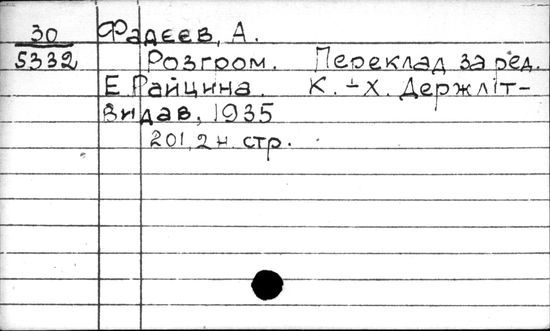 30 Фадєєв, А.
5332 Розгром. Переклад за ред.
Е. Райцина. К.-Х. Держліт-
видав, 1935
201, 2 н. стр.